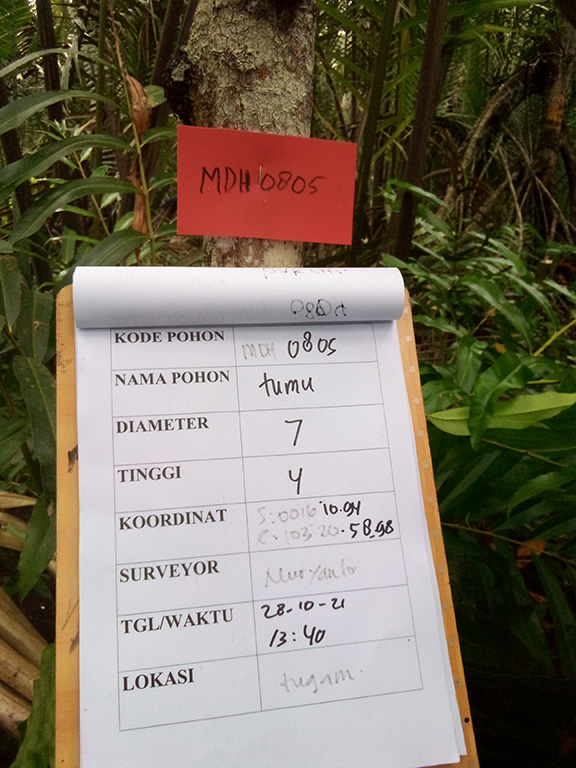 MDH 0805
KODE POHON MDH 0805
NAMA POHON tumu
DIAMETER 7
TINGGI 4
KOORDINAT S: 0016 10.94
E: 103 20.58.98
SURVEYOR Nuryanto
TGL/WAKTU 28-10-21
13:40
LOKASI tugam